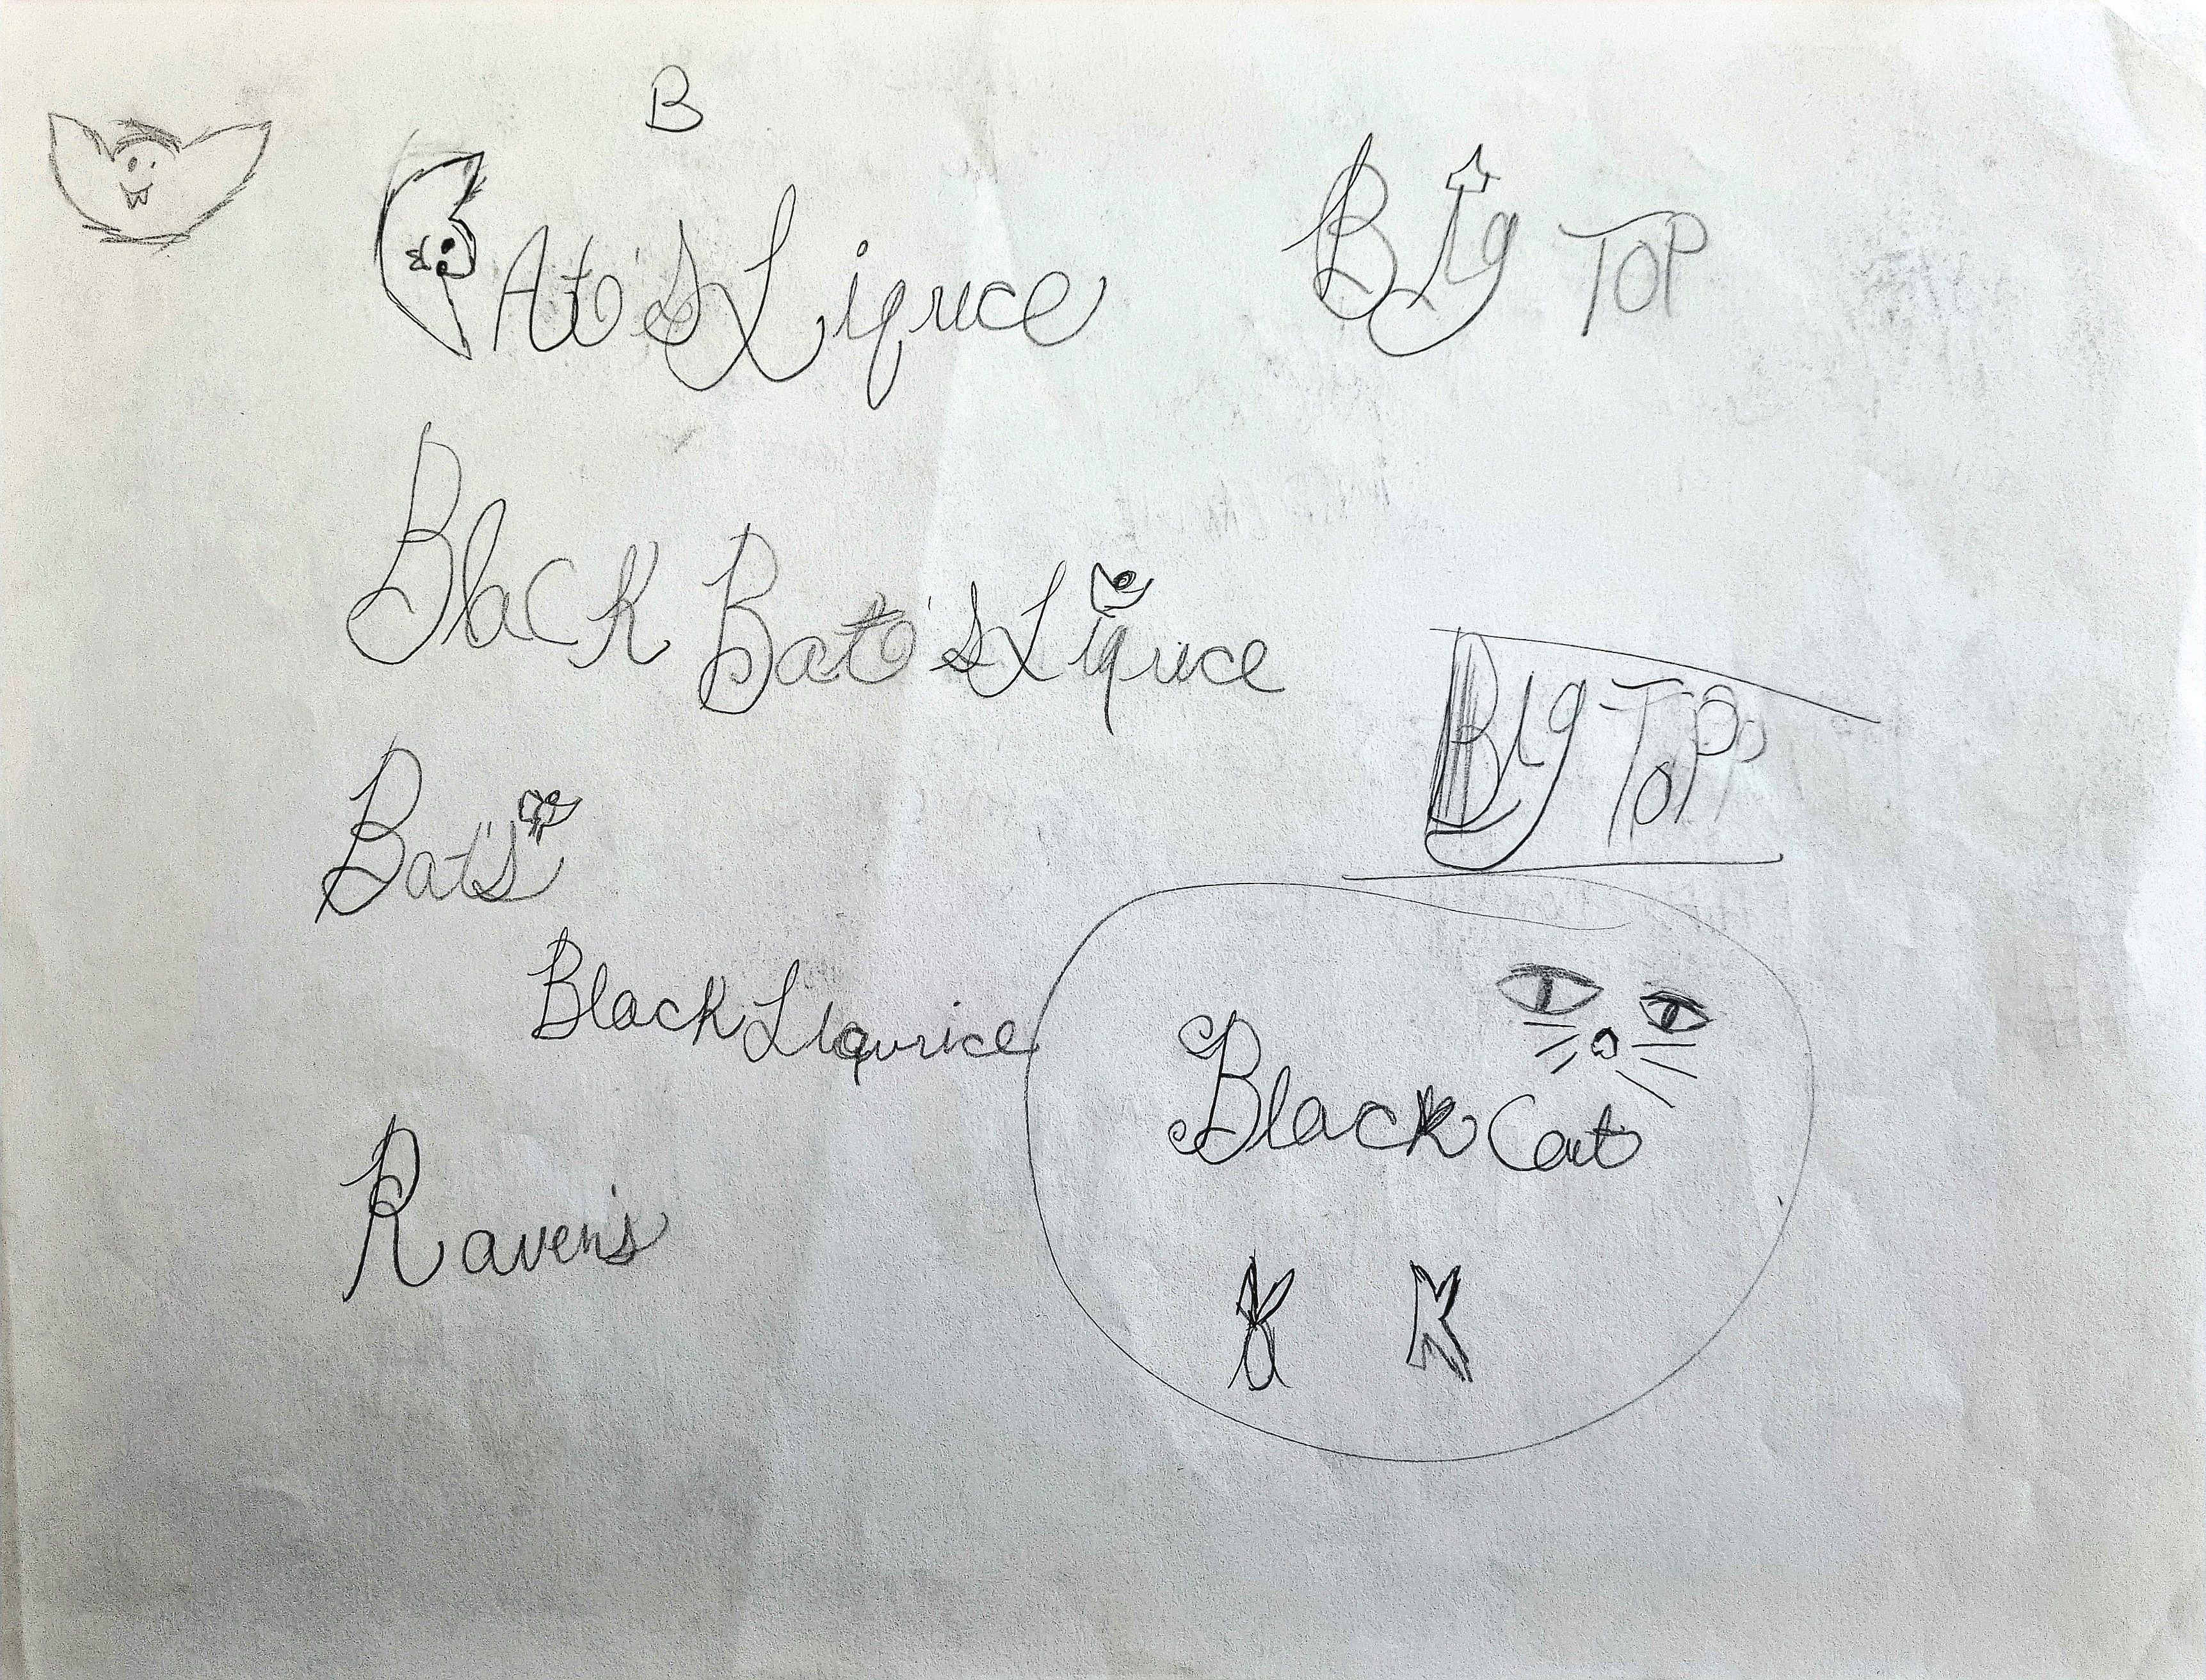 B
Ato's Liquce
Big Top
Black Bato's Liquce
Big Top
Bat's
Black Liqurice
Black Cat
Raven's
K K